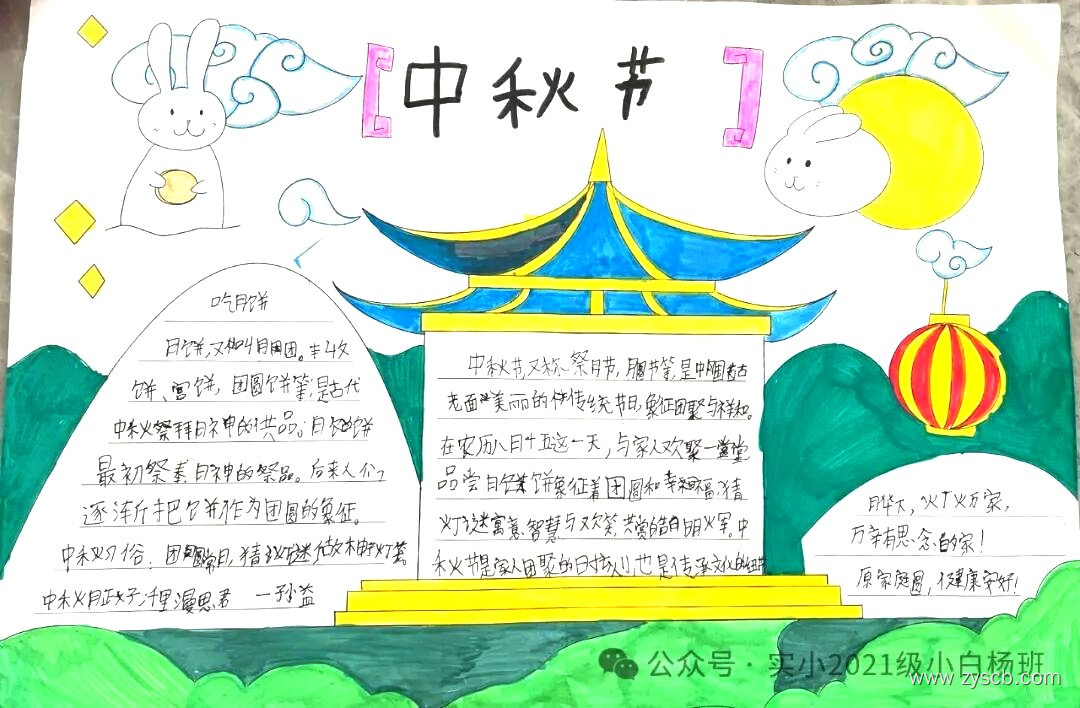 中秋节
吃月饼
月饼,又叫月团。丰收
饼、宫饼,团圆饼等,是古代
中秋祭拜月神的供品。月饼
最初祭奉月神的祭品。后来人们
逐渐把饼作为团圆的象征。
中秋习俗:团圆赏月,猜灯谜
中秋月正好,千里漫思君
中秋节,又称祭月节,是中国古
老而美丽的传统节日,象征团聚与祥和。
在农历八月十五这一天,与家人欢聚一堂
品尝月饼,饼象征着团圆和幸福,猜
灯谜寓意智慧与欢笑,共赏明
秋节是家人团聚的日,也是传承文化的
火丁火万家,
万亲有思念的家!
原家庭圆,健康安好!
公众号·实小2021级小白杨班
www.zyscb.com